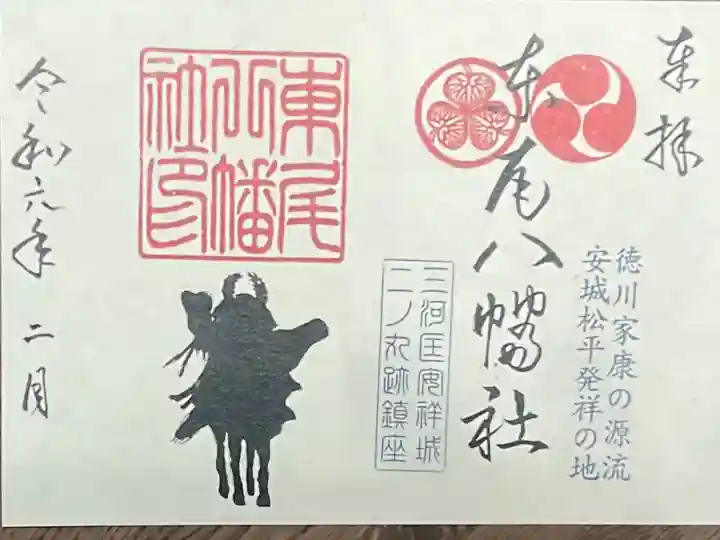 奉拝
東尾八幡社
徳川家康の源流
安城松平発祥の地
三河国安祥城
二ノ丸跡鎮座
東尾
八幡
社印
令和六年 二月